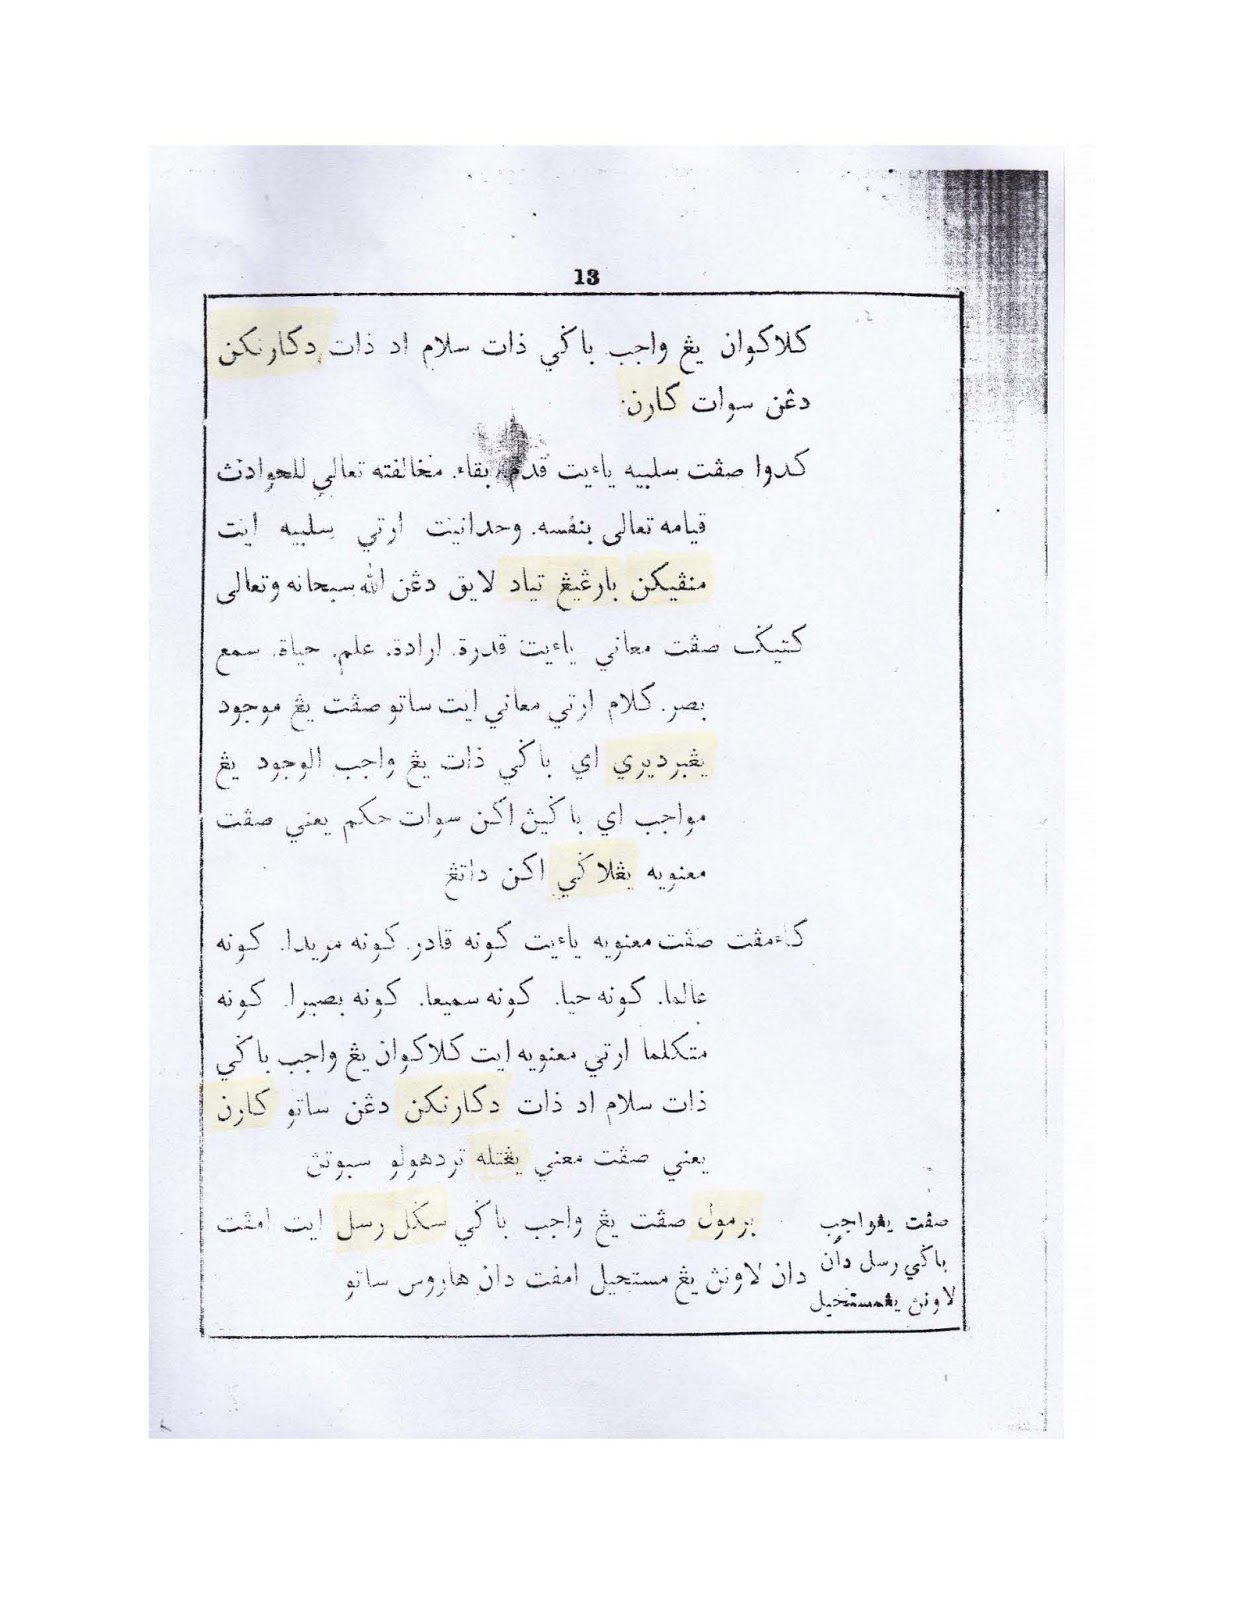 13
كلاكوان يڠ واجب باݢي ذات سلام اد ذات دكارنكن
دڠن سوات كارن.
كدوا صڤت سلبيه ياءيت قدم، بقاء. مخالفته تعالي للحوادث
قيامه تعالى بنفسه. وحدانيت ارتي سلبيه ايت
منڤيكن بارڠيڠ تياد لايق دڠن الله سبحانه وتعالى
كتيݢ صڤت معاني ياءيت قدرة. ارادة. علم. حياة. سمع
بصر. كلام ارتي معاني ايت ساتو صڤت يڠ موجود
يڠبرديري اي باݢي ذات يڠ واجب الوجود يڠ
مواجب اي باݢيڽ اكن سوات حكم يعني صڤت
معنويه يڠلاݢي اكن داتڠ
كاءمڤت صڤت معنويه ياءيت كونه قادر. كونه مريدا. كونه
عالما. كونه حيا. كونه سميعا. كونه بصيرا. كونه
متكلما ارتي معنويه ايت كلاكوان يڠ واجب باݢي
ذات سلام اد ذات دكارنكن دڠن ساتو كارن
يعني صڤت معني يڠتله تردهولو سبوتڽ
برمول صڤت يڠ واجب باݢي سكل رسل ايت امڤت
دان لاونڽ يڠ مستحيل امڤت دان هاروس ساتو
صڤت يڠواجب
باݢي رسل دان
لاونڽ يڠمستحيل